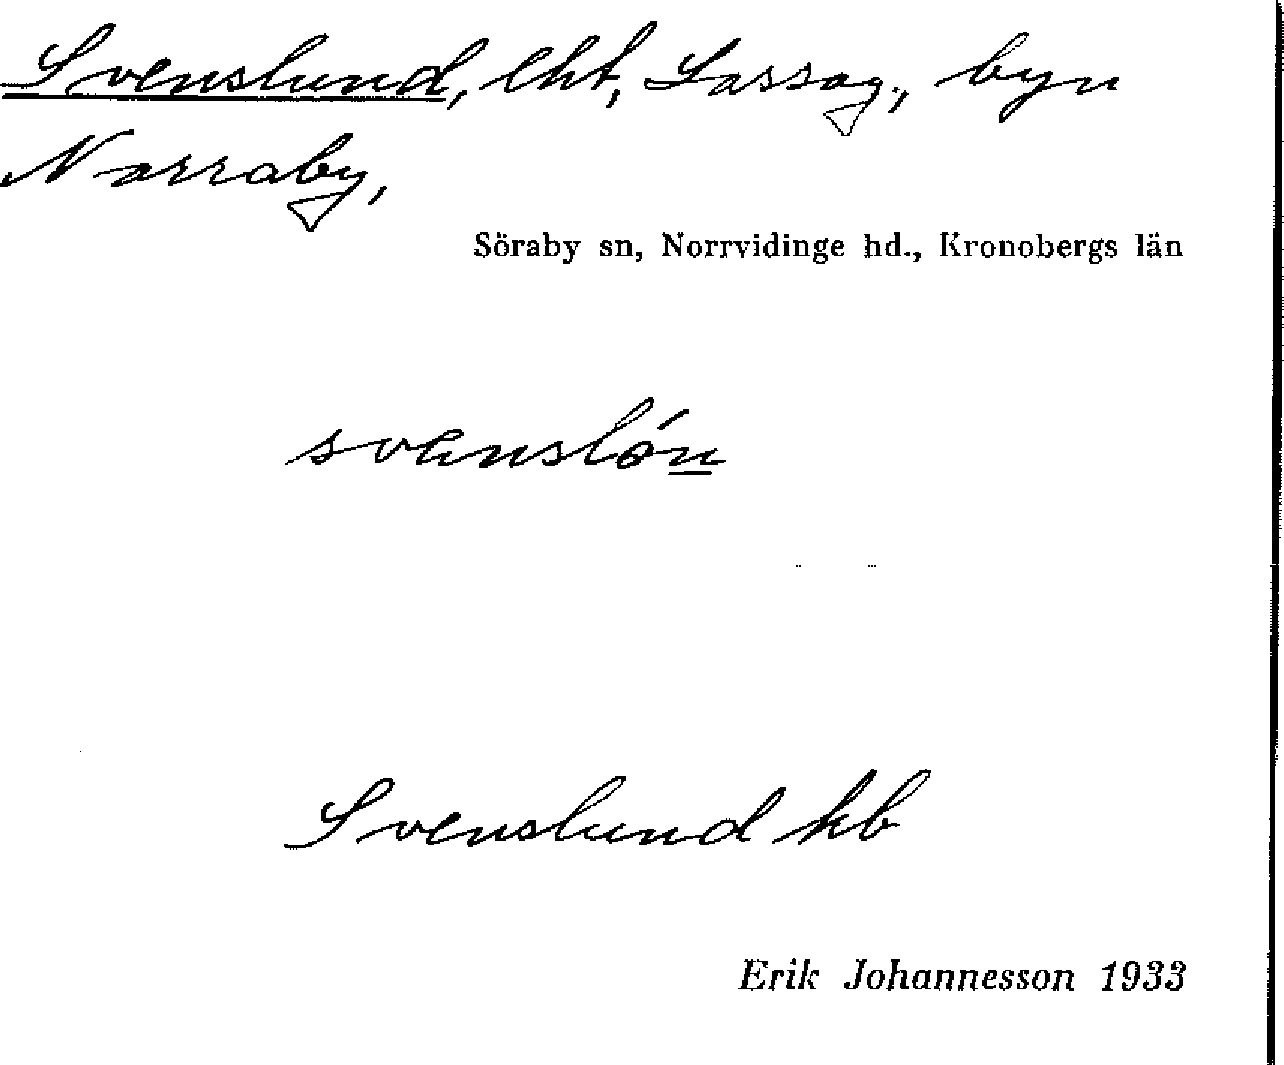 Svenslund, lht, Lassag., byn
Norraby,
Söraby sn, Norrvidinge hd., Kronobergs län
svenslón
Svenslund kb
Erik Johannesson 1933